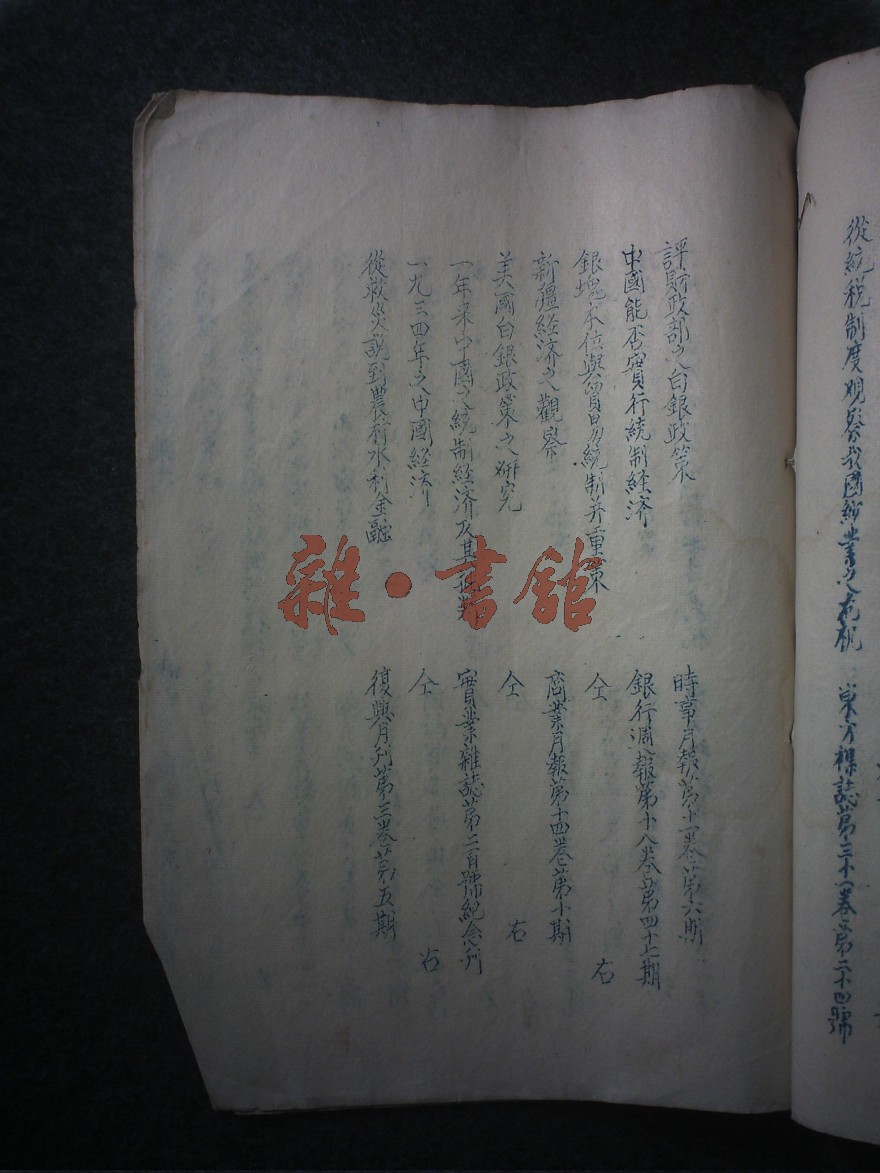 從統稅制度觀察我國紗業之危机 東方雜誌第三十一卷第二十四號
評財政部之白銀政策 時事月報第十一卷第六期
中國能否實行統制經济 銀行週報第十八卷第四十七期
銀塊本位與貿易統制并重策 仝 右
新疆經济之觀察 商業月報第十四卷第十期
美國白銀政策之研究 仝 右
一年来中國之統制經济及其 實業雜誌第二百號紀念刊
一九三四年之中國經济 仝 右
從救災說到農村水利金融 復興月刊第三卷第五期
雜·書館